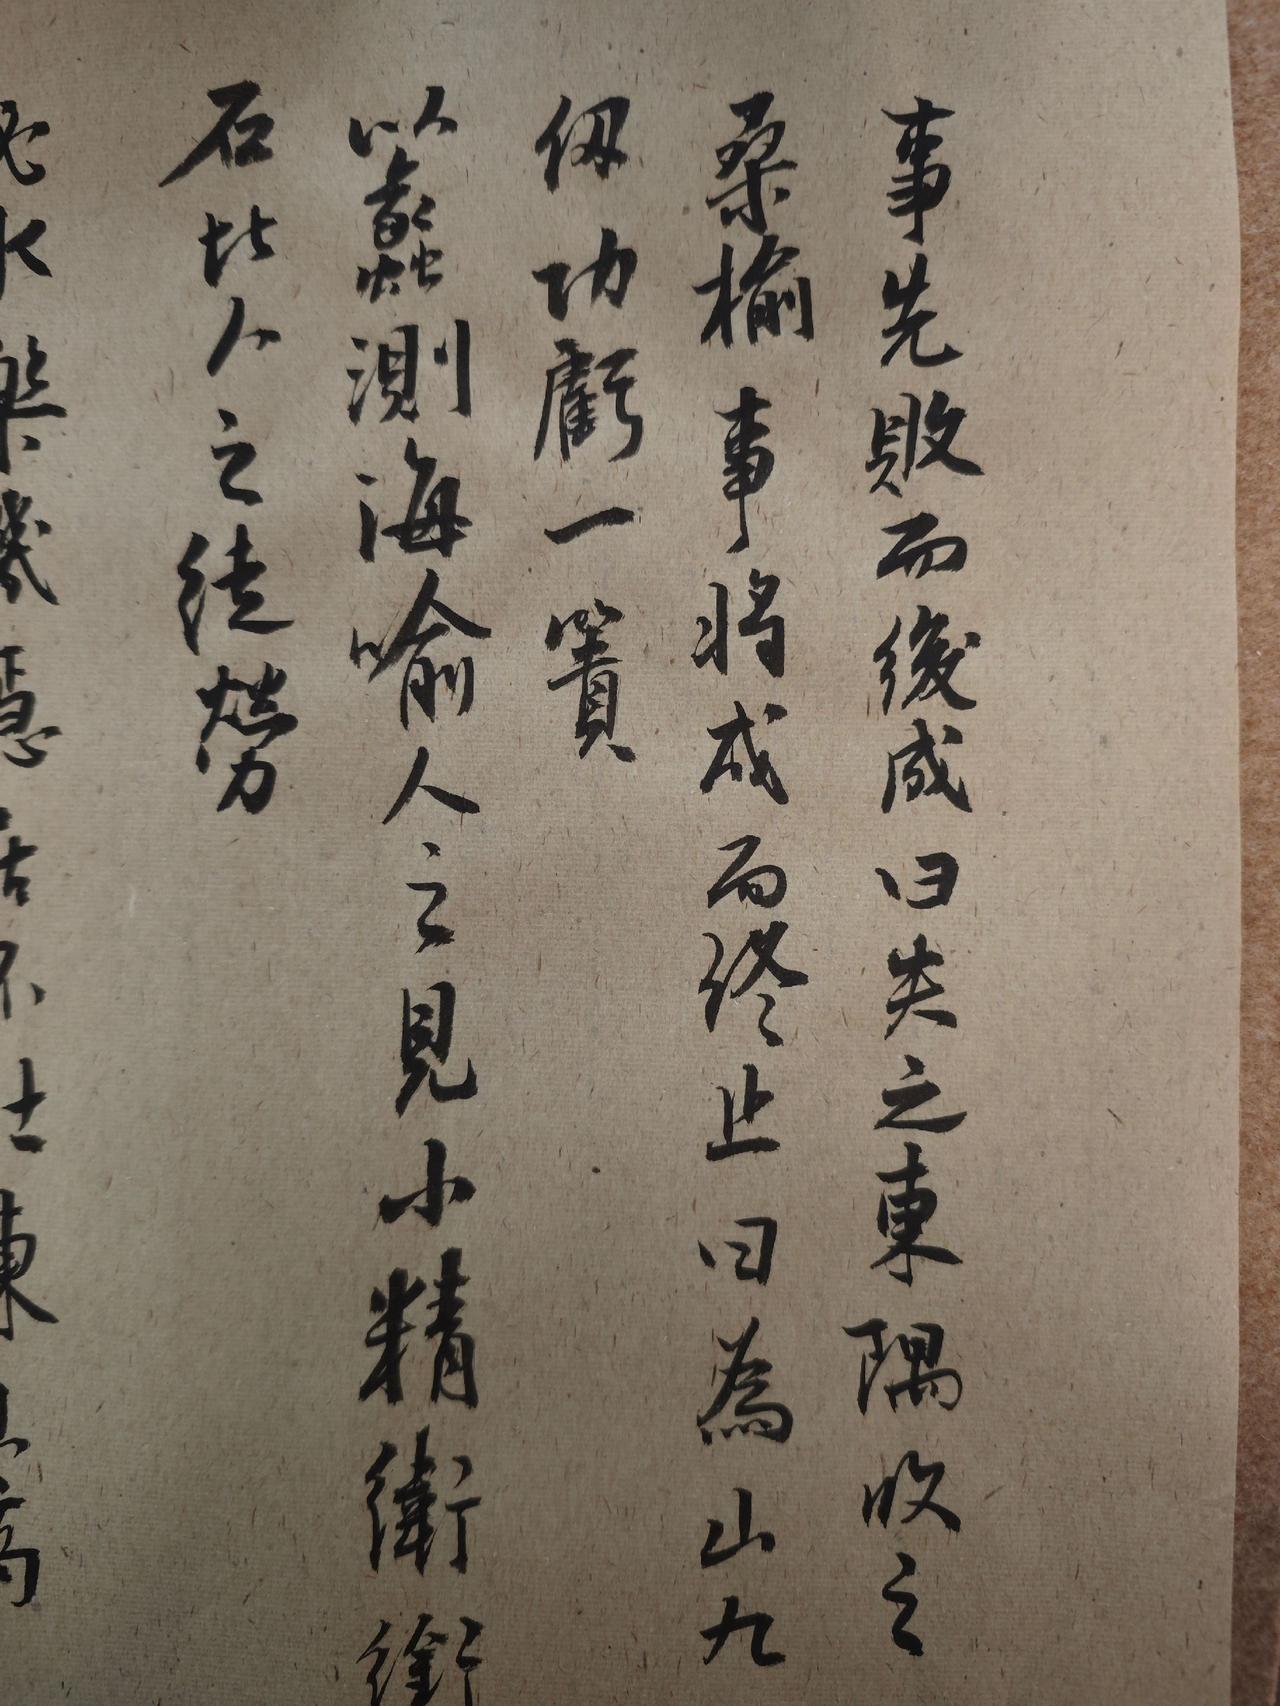 事先敗而後成曰失之東隅收之
桑榆事將成而終止曰為山九
仞功虧一簣
以蠡測海喻人之見小精衛銜
石比人之徒勞
泌水樂饑隱居不仕東山高